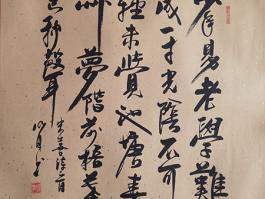 少年易老學難
成一寸光陰不可
輕未覺池塘春
草夢階前梧葉
已秋聲
朱喜詩一首